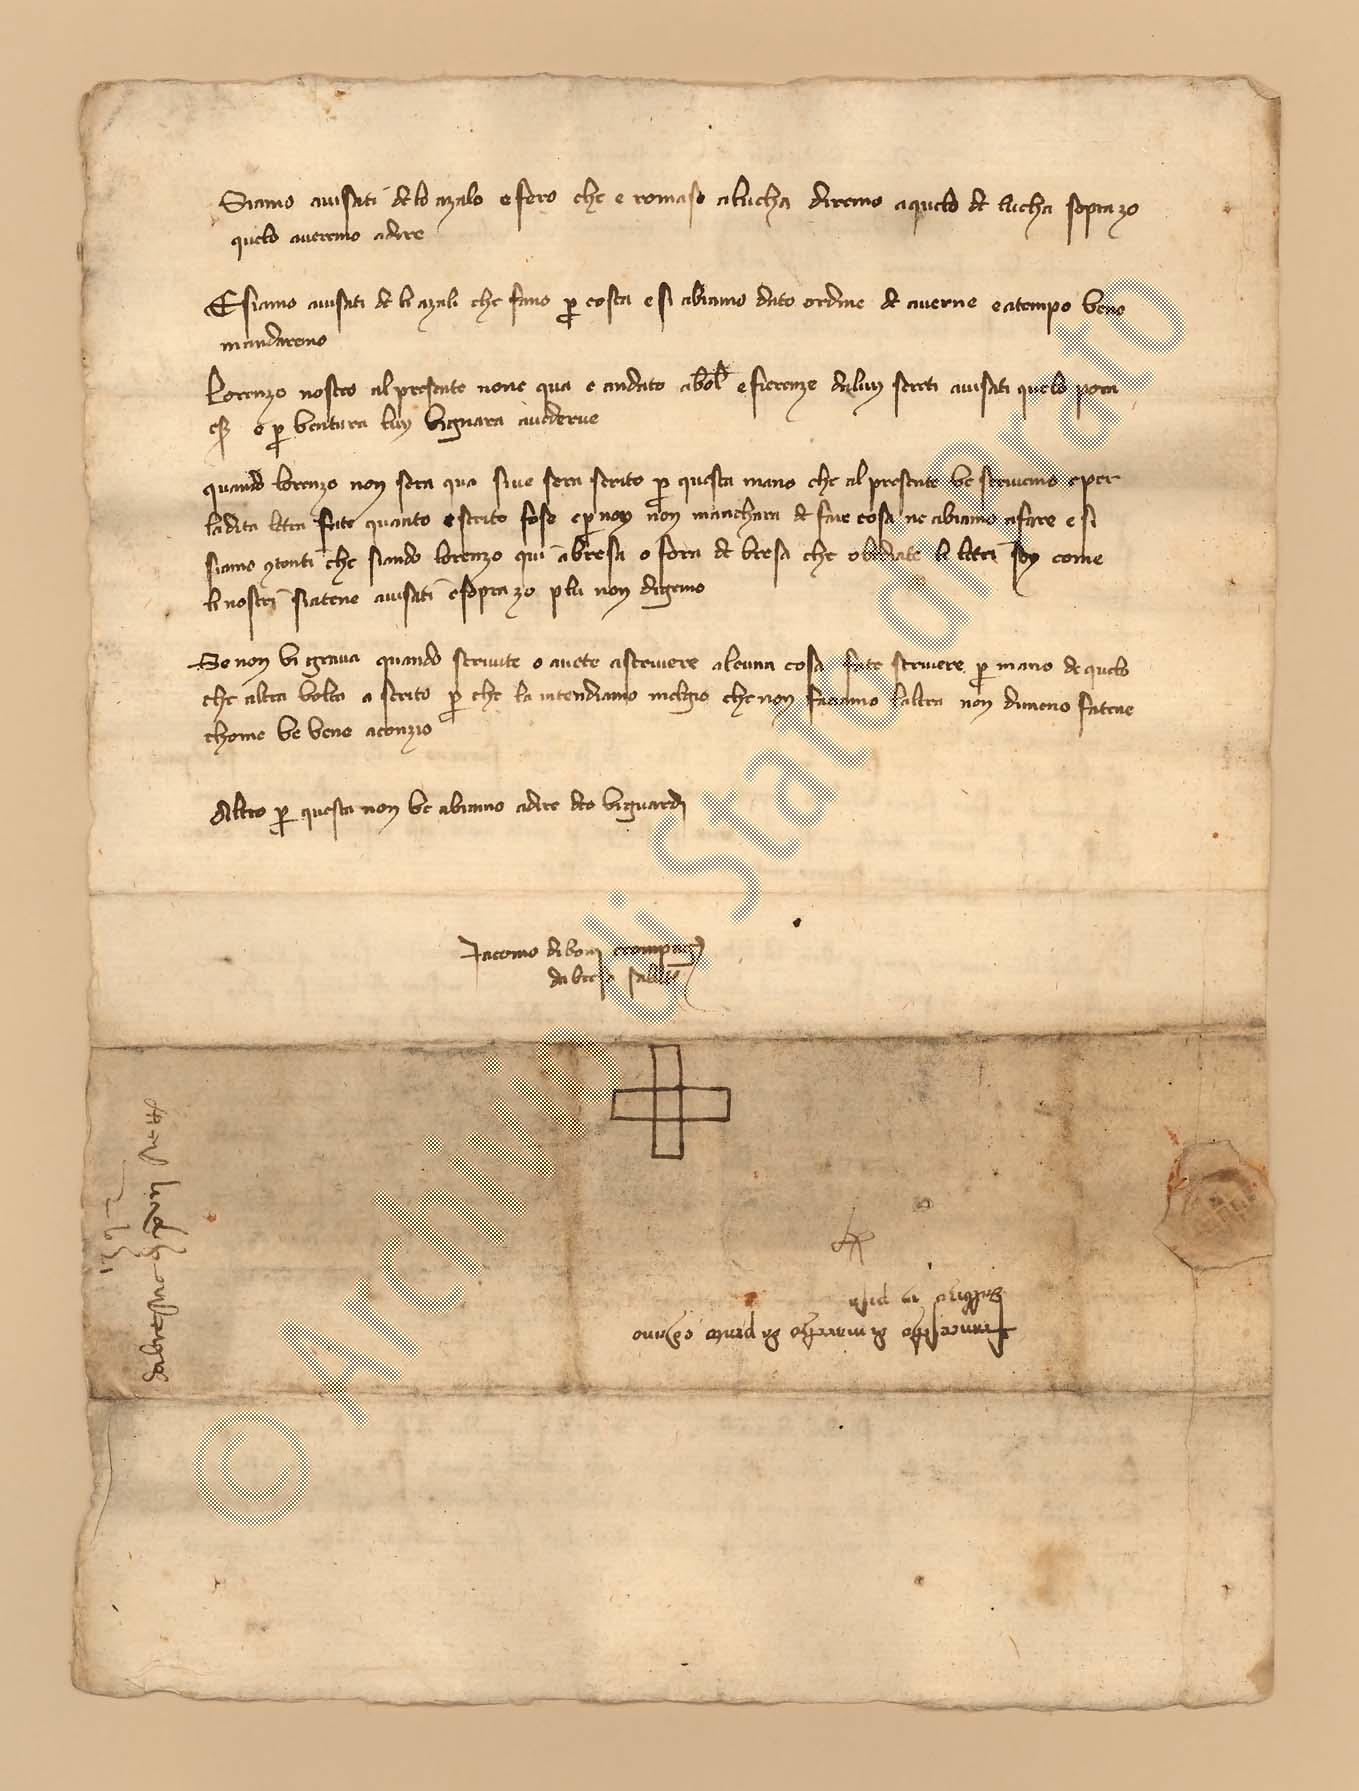 Siamo avisati de lo azalo e fero che e romaso a lucha diremo a quelo de lucha sopra zo
quelo averemo a dire
E siamo avisati de li azali che fano per costa e si abiamo dato ordine de averne e a tempo vene
mandaremo
Lorenzo nostro al presente none qua e andato a bol e fierenze da luy sereti avisati quelo pora
e per ventura luy vignara a vederve
quando lorenzo non sera qua sive sera scrito per questa mano che al presente ve scrivemo e per
la dita letra fate quanto e scrito fose e per non non manchara de fare cosa ne abiamo a fare e si
siamo contenti che siando lorenzo qui a bresa o fora de bresa che obediate le letre soy come
le nostre siatene avisati e sopra zo plu non digemo
Se non vi grava quando scrivite o avete a scrivere alcuna cosa fate scrivere per mano de quelo
che altra volta a scrito per che la intendiamo melgio che non faciamo l altra non dimeno fatene
chome ve vene aconzio
Altro per questa non ve abiamo a dire deo vi guardi
Jacomo di boni e compagni
da bresa salute
Francescho di marcho da prato e chonpagni
in pisa
da bresca
© Archivio di Stato di Prato